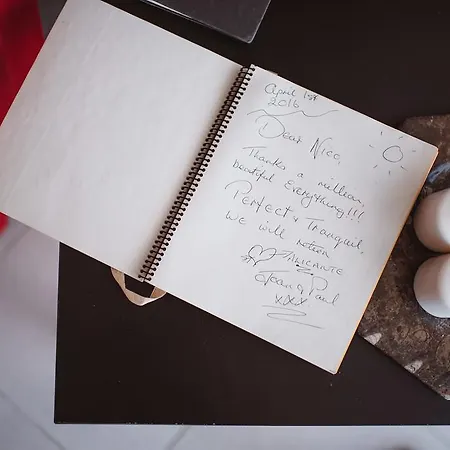 April 1st
2016
Dear Nico,
Thanks a million,
beautiful everything!!!
Perfect & Tranquil.
We will return
ALICANTE
Joan & Paul
xxx